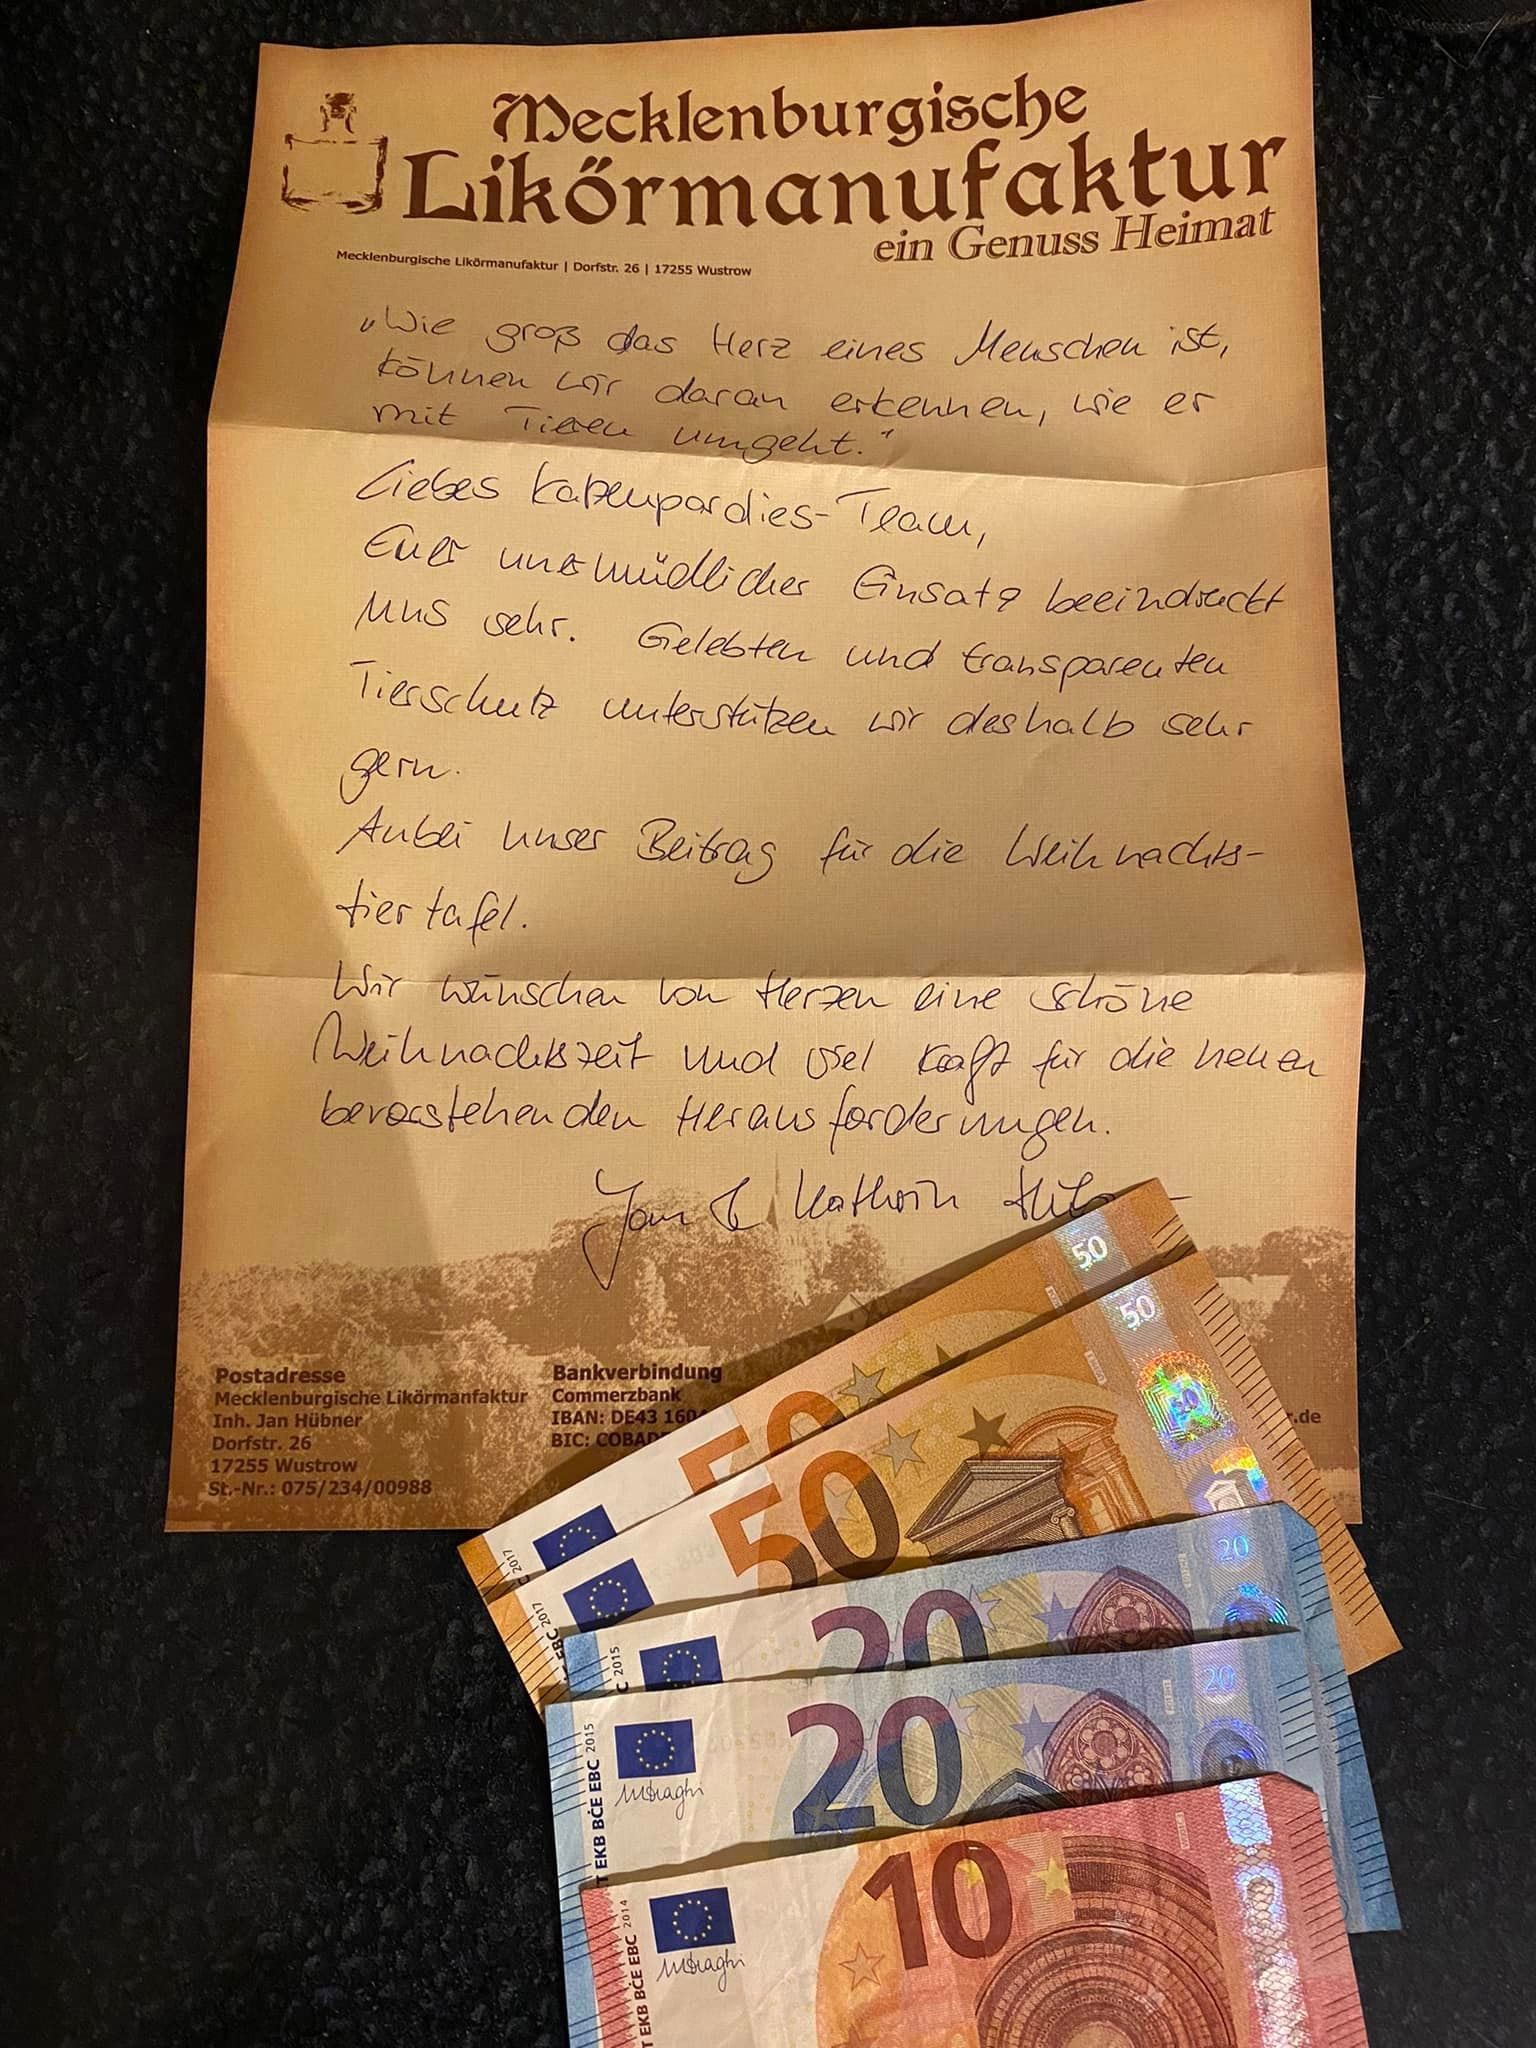 Mecklenburgische
Likörmanufaktur
ein Genuss Heimat
Mecklenburgische Likörmanufaktur | Dorfstr. 26 | 17255 Wustrow
„Wie groß das Herz eines Menschen ist,
können wir daran erkennen, wie er
mit Tieren umgeht."
Liebes Katzenpardies-Team,
Euer unermüdlicher Einsatz beeindruckt
uns sehr. Gelebten und transparenten
Tierschutz unterstützen wir deshalb sehr
gern.
Anbei unser Beitrag für die Weihnachts-
tiertafel.
Wir wünschen von Herzen eine schöne
Weihnachtszeit und viel Kraft für die neuen
bevorstehenden Herausforderungen.
Jan & Kathrin
Postadresse
Mecklenburgische Likörmanfaktur
Inh. Jan Hübner
Dorfstr. 26
17255 Wustrow
St.-Nr.: 075/234/00988
Bankverbindung
Commerzbank
IBAN: DE43 160
BIC: COBAD
r.de
50
50
50
2017
50
50
EBC 2017
20
20
2015
20
20
EKB BĊE EBC 2015
MDraghi
10
EKB BĊE EBC 2014
MDraghi